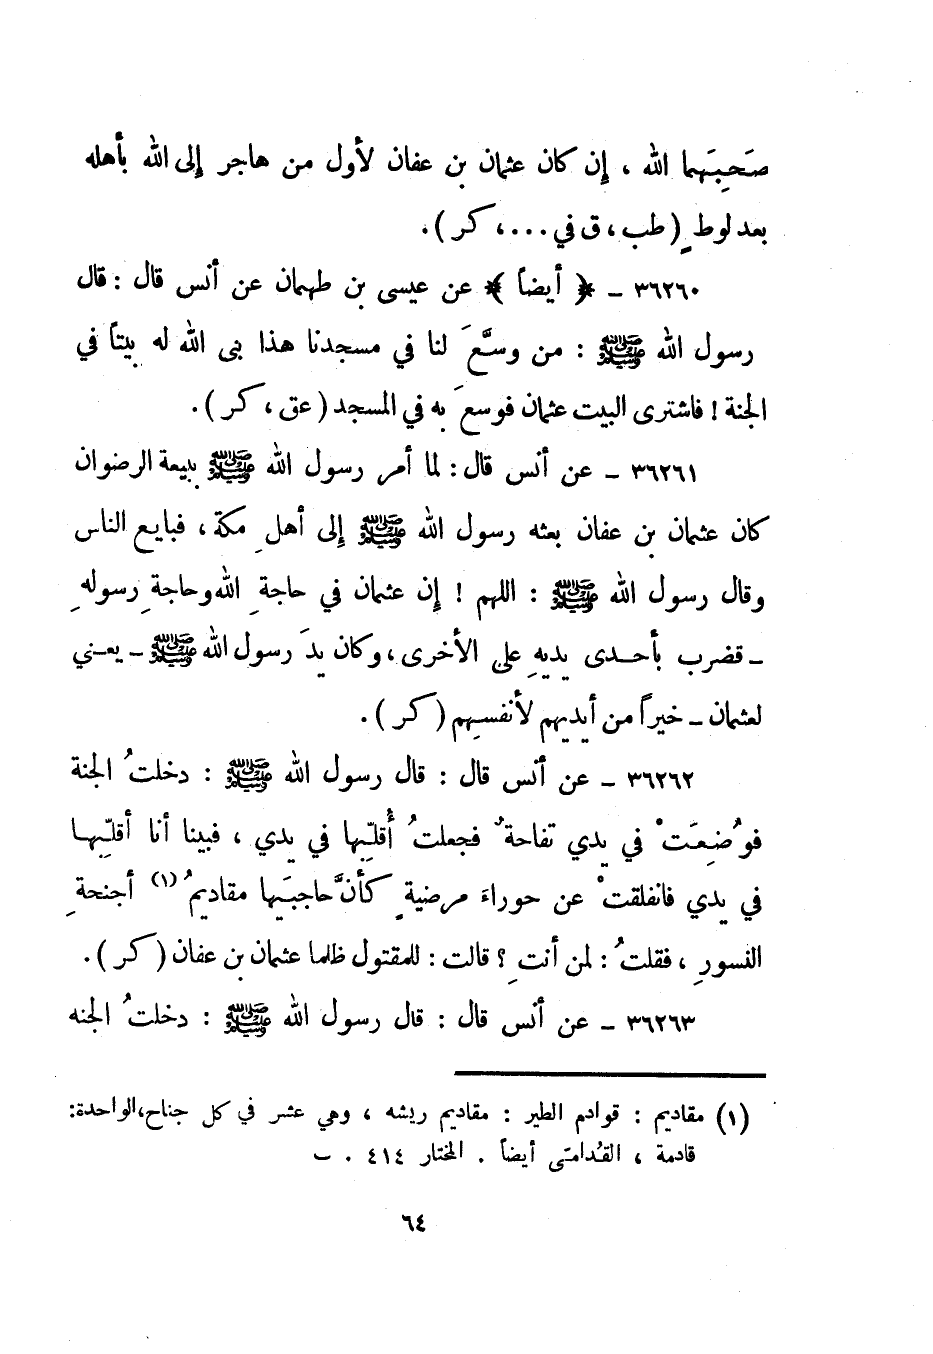 صَحِبَهما الله ، إن كان عثمان بن عفان لأول من هاجر إلى الله بأهله
بعد لوطٍ (طب ، ق في ... ، كر ).
٣٦٢٦٠ ـ ﴿ أيضاً ﴾ عن عيسى بن طهمان عن أنس قال : قال
رسول الله ﷺ : من وسَّعَ لنا في مسجدنا هذا بنى الله له بيتاً في
الجنة ! فاشترى البيت عثمان فوسعَ به في المسجد (عق ، كر ).
٣٦٢٦١ ـ عن أنس قال : لما أمر رسول الله ﷺ ببيعة الرضوان
كان عثمان بن عفان بعثه رسول الله ﷺ إلى أهلِ مكة ، فبايع الناس
وقال رسول الله ﷺ : اللهم ! إن عثمان في حاجةِ الله وحاجةِ رسولهِ
ـ فضرب بأحدى يديهِ على الأخرى ، وكان يدَ رسول الله ﷺ ـ يعني
لعثمان ـ خيراً من أيديهم لأنفسهم ( كر ).
٣٦٢٦٢ ـ عن أنس قال : قال رسول الله ﷺ : دخلتُ الجنة
فوُضِعَتْ في يدي تفاحةٌ فجعلتُ أُقلِّبها في يدي ، فبينا أنا أقلِّبها
في يدي فانفلقتْ عن حوراءَ مرضيةٍ كأنَّ حاجبَيها مقاديمُ (١) أجنحةِ
النسورِ ، فقلتُ : لمن أنتِ ؟ قالت : للمقتول ظلما عثمان بن عفان ( كر ).
٣٦٢٦٣ ـ عن أنس قال : قال رسول الله ﷺ : دخلتُ الجنه
(١) مقاديم : قوادم الطير : مقاديم ريشه ، وهي عشر في كل جناح، الواحدة:
قادمة ، القُدامَى أيضاً . المختار ٤١٤ . ب
٦٤